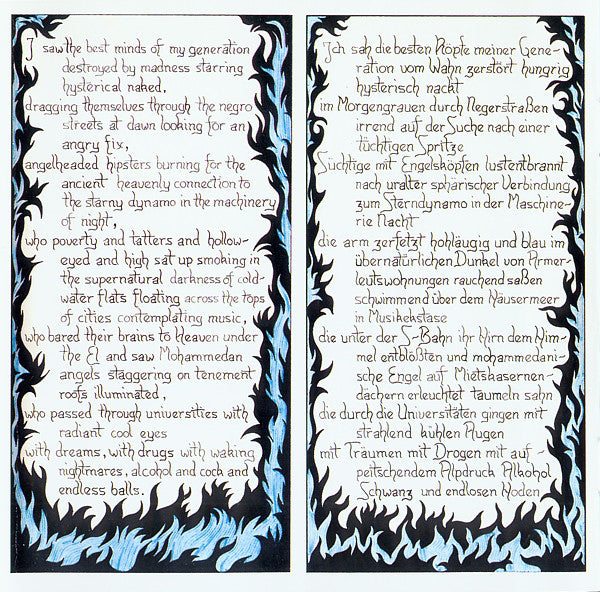 I saw the best minds of my generation
destroyed by madness starring
hysterical naked,
dragging themselves through the negro
streets at dawn looking for an
angry fix,
angelheaded hipsters burning for the
ancient heavenly connection to
the starny dynamo in the machinery
of night,
who poverty and tatters and hollow-
eyed and high sat up smoking in
the supernatural darkness of cold-
water flats floating across the tops
of cities contemplating music,
who bared their brains to Heaven under
the El and saw Mohammedan
angels staggering on tenement
roofs illuminated,
who passed through universities with
radiant cool eyes
with dreams, with drugs with waking
nightmares, alcohol and cock and
endless balls.
Ich sah die besten Köpfe meiner Gene-
ration vom Wahn zerstört hungrig
hysterisch nackt
im Morgengrauen durch Negerstraßen
irrend auf der Suche nach einer
tüchtigen Spritze
Süchtige mit Engelsköpfen lustentbrannt
nach uralter sphärischer Verbindung
zum Sterndynamo in der Maschine-
rie Nacht
die arm zerfetzt hohläugig und blau im
übernatürlichen Dunkel von Armer-
leutswohnungen rauchend saßen
schwimmend über dem Häusermeer
in Musikekstase
die unter der S-Bahn ihr Hirn dem Him-
mel entblößten und mohammedani-
sche Engel auf Mietskasernen-
dächern erleuchtet taumeln sahn
die durch die Universitäten gingen mit
strahlend kühlen Augen
mit Träumen mit Drogen mit auf-
peitschendem Alpdruck Alkohol
Schwanz und endlosen Hoden